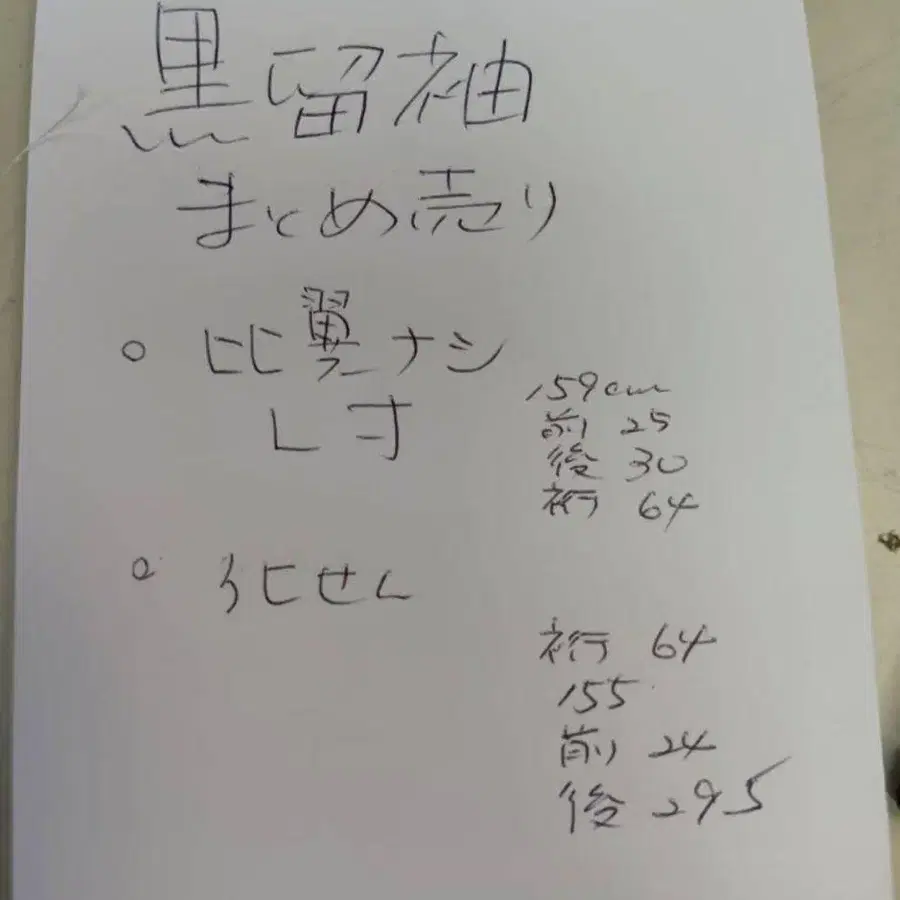 黒留袖
まとめ売り
○ 比翼ナシ
L寸
159cm
前 25
後 30
裄 64
○ 化せん
裄 64
155
前 24
後 295